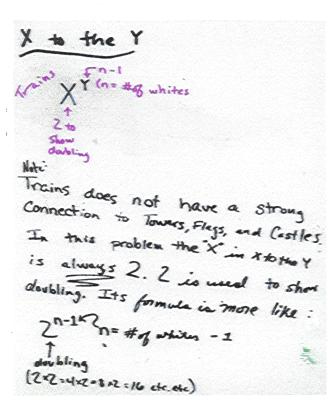 X to the Y
Trains
X Y n-1
(n = # of whites
2 to
show
doubling
Note:
Trains does not have a strong
Connection to Towers, Flags, and Castles.
In this problem the "X" in X to the Y
is always 2. 2 is used to show
doubling. Its formula is more like:
2 n-1 n = # of whites -1
doubling
(2x2=4x2=8x2=16 etc. etc)